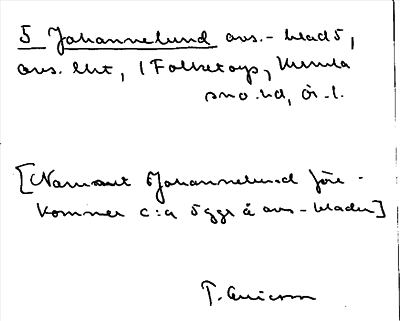 5 Johannelund avs.-blad 5,
avs. lht, i Folketorps, Kumla
sn o. hd, Ör. l.
[Namnet Johannelund före-
kommer c:a 5 ggr å avs-bladen]
T. Ericson